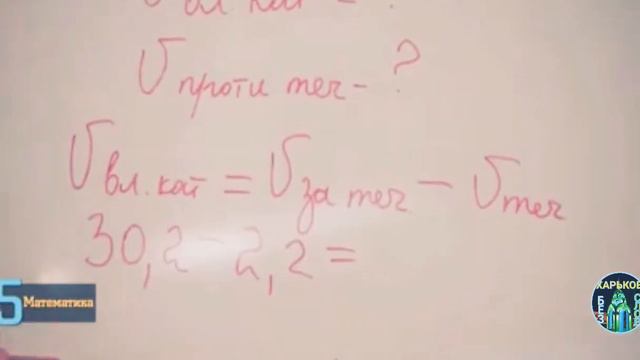 Vвл. кат - ?
Vпроти теч - ?
Vвл. кат = Vза теч - Vтеч
30,2 - 2,2 =
5 Математика
ХАРЬКОВ
БЕЗ